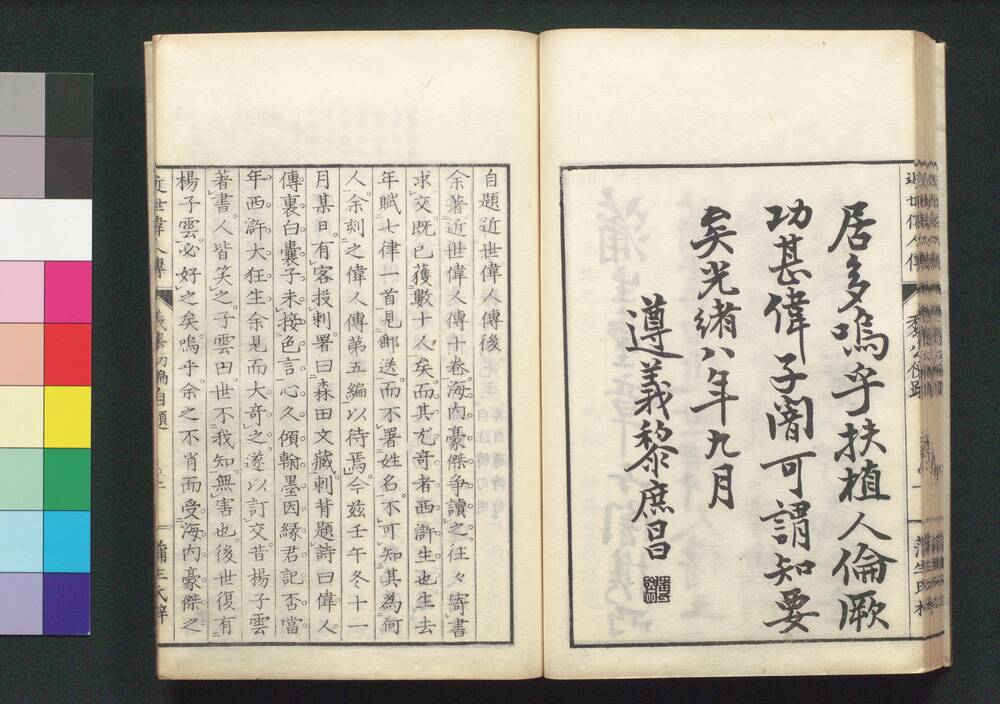 居多嗚乎扶植人倫厥
功甚偉子闇可謂知要
矣光緒八年九月
遵義黎庶昌
自題近世偉人傳後
余著近世偉人傳十卷海內豪傑爭讀之往々寄書
求交既已獲數十人矣而其尤奇者西滸生也生去
年賦七律一首見郵送而不署姓名不可知其為何
人余刻之偉人傳第五編以待焉今茲壬午冬十一
月某日有客投刺署曰森田文藏刺背題詩曰偉人
傳裏白囊子未接色言心久傾翰墨因緣君記否當
年西滸大狂生余見而大奇之遂以訂交昔揚子雲
著書人皆笑之子雲曰世不我知無害也後世復有
楊子雲必好之矣嗚乎余之不肖而受海內豪傑之
近世偉人傳